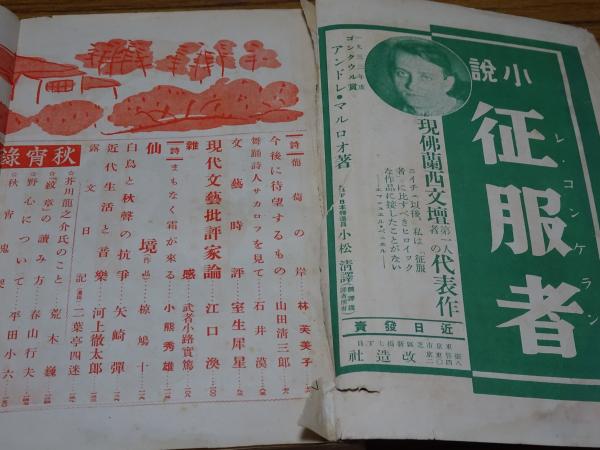 小說
征服者
レ・コンケラン
一九三三年度
ゴンクウル賞
アンドレ・マルロオ著
現佛蘭西文壇第一人者の代表作
ニイチェ以後、私は「征服
者」に比すべきヒロイック
な作品に接したことがない
小松清譯
近日發賣
改造社
〔詩〕葡萄の岸 林芙美子
今後に待望するもの 山田清三郎
舞踊詩人サカロフを見て 石井漠
文藝時評 室生犀星
現代文藝批評家論 江口渙
雜感 武者小路實篤
〔詩〕まもなく霜が來る 小熊秀雄
仙境 椋鳩十
白鳥と秋聲の抗爭 矢崎彈
近代生活と音樂 河上徹太郎
露文日記 二葉亭四迷
秋宵錄
☆芥川龍之介氏のこと 荒木巍
☆「紋章」の讀み方 春山行夫
☆野心について 平田小六
☆秋宵鬼